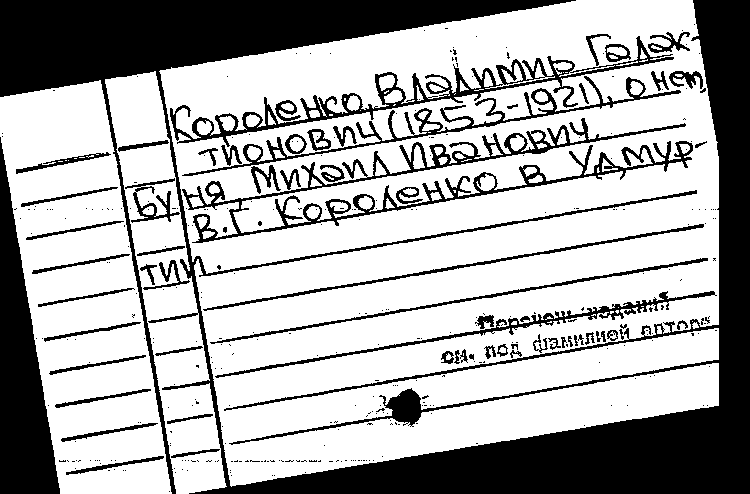 Короленко, Владимир Галак-
тионович (1853-1921), о нем
Буня, Михаил Иванович.
В.Г. Короленко в Удмур-
тии.
Перечень изданий
см. под фамилией автора